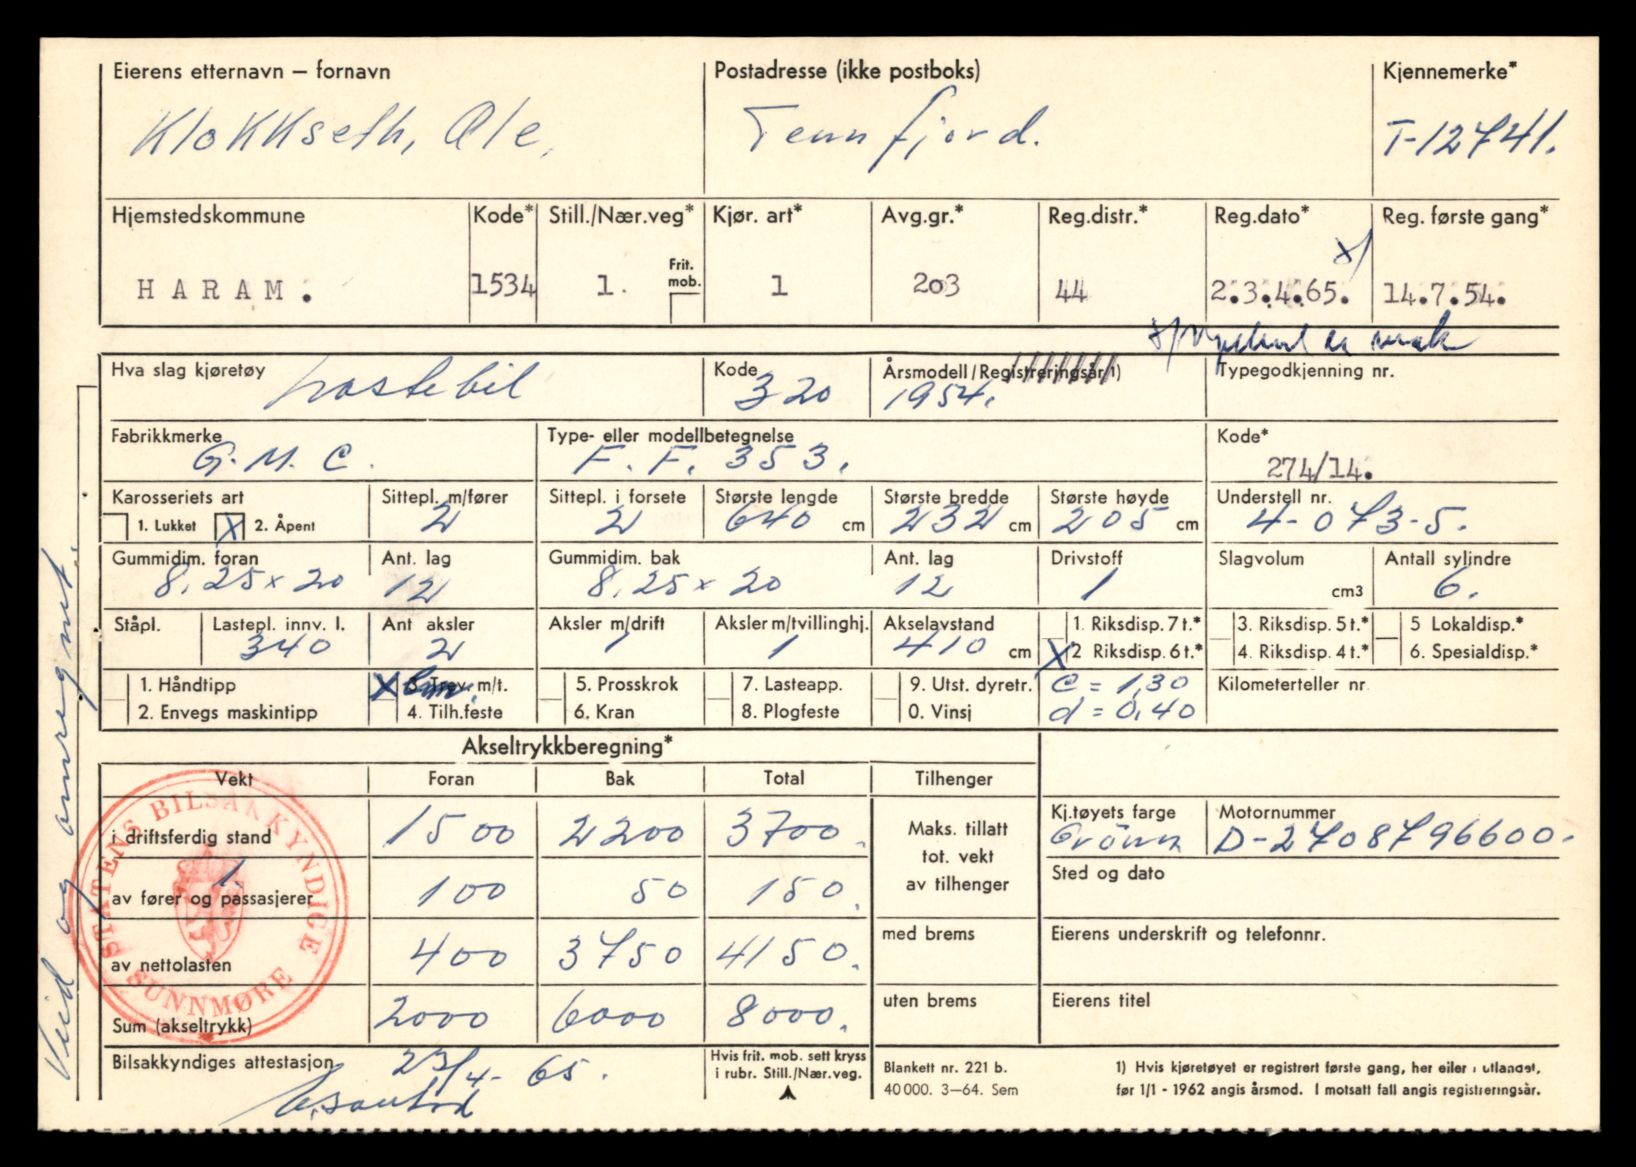 Eierens etternavn – fornavn Postadresse (ikke postboks) Kjennemerke*
Klokkseth, Ole, Tennfjord. T-12741.
Hjemstedskommune Kode* Still./Nær.veg* Kjør. art* Avg.gr.* Reg.distr.* Reg.dato* Reg. første gang*
x/
Frit. mob.
HARAM. 1534 1. 1 203 44 2.3.4.65. 14.7.54.
Hva slag kjøretøy Kode Årsmodell/Registreringsår 1) Typegodkjenning nr.
Lastebil 320 1954.
Fabrikkmerke Type- eller modellbetegnelse Kode*
G. M. C. F. F. 353. 274/14.
Karosseriets art Sittepl. m/fører Sittepl. i forsete Største lengde Største bredde Største høyde Understell nr.
1. Lukket X 2. Åpent 2 2 640 cm 232 cm 205 cm 4-073-5.
Gummidim. foran Ant. lag Gummidim. bak Ant. lag Drivstoff Slagvolum Antall sylindre
8.25x20 12 8.25x20 12 1 cm3 6.
Ståpl. Lastepl. innv. l. Ant aksler Aksler m/drift Aksler m/tvillinghj. Akselavstand 1. Riksdisp. 7 t.* 3. Riksdisp. 5 t.* 5 Lokaldisp.*
340 2 1 1 410 cm X 2 Riksdisp. 6 t.* 4. Riksdisp. 4 t.* 6. Spesialdisp.*
1. Håndtipp X 3 Trev. m/t. 5. Prosskrok 7. Lasteapp. 9. Utst. dyretr. C = 1,30 Kilometerteller nr
2. Envegs maskintipp 4. Tilh.feste 6. Kran 8. Plogfeste 0. Vinsj d = 0,40
Akseltrykkberegning*
Vekt Foran Bak Total Tilhenger
i driftsferdig stand 1500 2200 3700. Maks. tillatt tot. vekt av tilhenger
Kj.tøyets farge Motornummer
Grönn D-270879 6600.
1.
av fører og passasjerer 100 50 150. Sted og dato
av nettolasten 400 3750 4150. med brems Eierens underskrift og telefonnr.
Sum (akseltrykk) 2000 6000 8000. uten brems Eierens titel
STATENS BILSAKKYNDIGE
SUNNMØRE
Bilsakkyndiges attestasjon 23/4-65.
Hvis frit. mob. sett kryss
i rubr. Still./Nær.veg.
Blankett nr. 221 b.
40 000. 3–64. Sem
1) Hvis kjøretøyet er registrert første gang, her eller i utlandet,
før 1/1 - 1962 angis årsmod. I motsatt fall angis registreringsår.
Veid og omregnet.